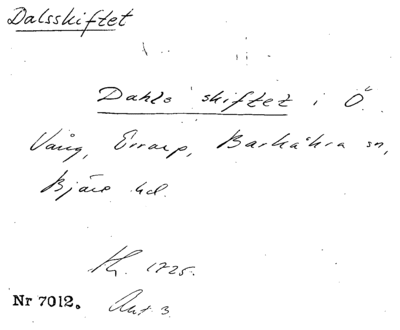 Dalsskiftet
Dahls skiftet i Ö.
Vång, Errarp, Barkåkra sn,
Bjäre hd.
Kh. 1825.
Akt 3.
Nr 7012.